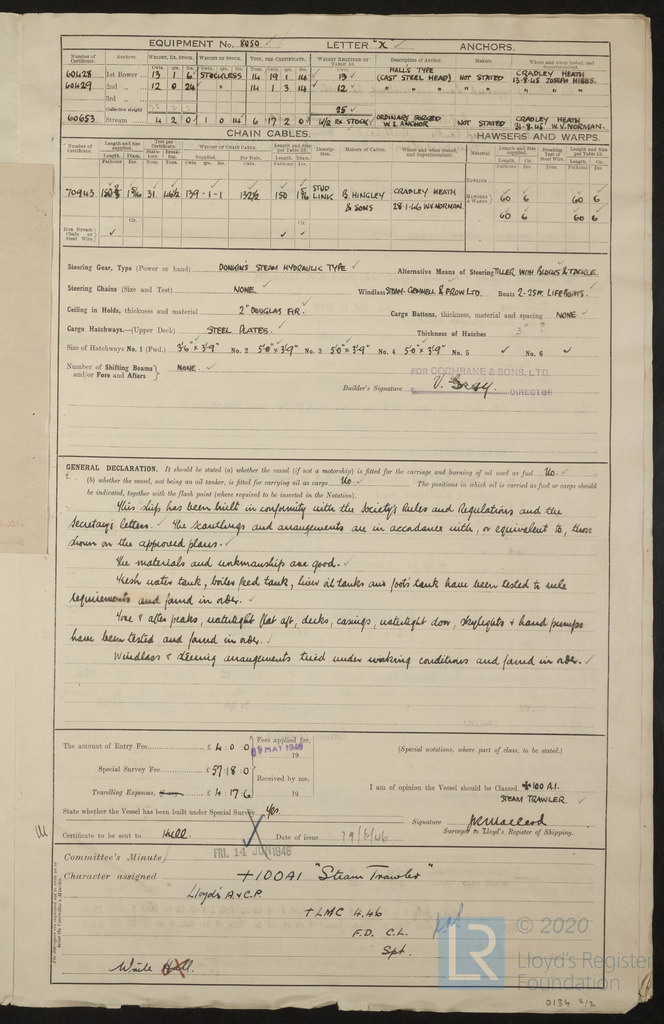 EQUIPMENT No. 8050 LETTER "X" ANCHORS.
Number of Certificate. Anchors. WEIGHT, EX. STOCK. WEIGHT OF STOCK. TEST, PER CERTIFICATE. WEIGHT REQUIRED BY TABLE 53. Description of Anchor. Makers. Where and when tested, and Superintendent.
60428 1st Bower 13 1 6 STOCKLESS 14 19 1 14 13 HALL'S TYPE (CAST STEEL HEAD) NOT STATED CRADLEY HEATH 13·8·45 JOSEPH HIBBS.
60429 2nd „ 12 0 24 " 14 1 3 14 12 " " " "
3rd „
Collective weight 25 2 2 25
60653 Stream 4 2 0 1 0 14 6 17 2 0 4½ EX. STOCK ORDINARY FORGED W.I. ANCHOR NOT STATED CRADLEY HEATH 31·8·45 W.V. NORMAN.
CHAIN CABLES. HAWSERS AND WARPS.
Number of Certificate. Length and size supplied. Test per Certificate. WEIGHT OF CHAIN CABLE. Length and size per Table 53. Description. Makers of Cables. Where and when tested, and Superintendent. Material. Length and Size supplied. Breaking Test of Steel Wire. Length and Size per Table 53.
Length. Diam. Supplied. Per Rule. Length. Diam. Length. Cir. Length. Cir.
Fathoms Ins. Fathoms Ins.
70943 31 46½ 139 - 1 - 1 132½ 150 1 5/16 STUD LINK B. HINGLEY & SONS CRADLEY HEATH 28·1·46 W.V. NORMAN. HAWSERS & WARPS 60 6 60 6
60 6 60 6
Iron Stream Chain or Steel Wire
Steering Gear, Type (Power or hand) DONKIN'S STEAM HYDRAULIC TYPE Alternative Means of Steering TILLER WITH BLOCKS & TACKLE.
Steering Chains (Size and Test) NONE Windlass STEAM - GEMMELL & FROW LTD. Boats 2-25ft. LIFEBOATS.
Ceiling in Holds, thickness and material 2" DOUGLAS FIR. Cargo Battens, thickness, material and spacing NONE
Cargo Hatchways.—(Upper Deck) STEEL PLATES. Thickness of Hatches 3" ?
Size of Hatchways No. 1 (Fwd.) 3'6" x 3'9" No. 2 5'0" x 3'9" No. 3 5'0" x 3'9" No. 4 5'0" x 3'9" No. 5 No. 6
Number of Shifting Beams and/or Fore and Afters NONE.
FOR COCHRANE & SONS, LTD.
Builder's Signature DIRECTOR
GENERAL DECLARATION. It should be stated (a) whether the vessel (if not a motorship) is fitted for the carriage and burning of oil used as fuel No.
(b) whether the vessel, not being an oil tanker, is fitted for carrying oil as cargo No. The positions in which oil is carried as fuel or cargo should
be indicated, together with the flash point (where required to be inserted in the Notation).
This ship has been built in conformity with the Society's Rules and Regulations and the
Secretary's letters. The scantlings and arrangements are in accordance with, or equivalent to, those
shown on the approved plans.
The materials and workmanship are good.
Fresh water tank, boiler feed tank, liver oil tanks and foots tank have been tested to rule
requirements and found in order.
Fore & after peaks, watertight flat aft, decks, casings, watertight door, skylights & hand pumps
have been tested and found in order.
Windlass & steering arrangements tried under working conditions and found in order.
The amount of Entry Fee £ 4 : 0 : 0 Fees applied for, 19
29 MAY 1946
(Special notations, where part of class, to be stated.)
Special Survey Fee £ 57 : 18 : 0 Received by me,
Travelling Expenses, £ 4 : 17 : 6 19
I am of opinion the Vessel should be Classed ✠100 A1.
STEAM TRAWLER
State whether the Vessel has been built under Special Survey Yes.
Signature
Surveyor to Lloyd's Register of Shipping.
Certificate to be sent to Hull. Date of issue
Committee's Minute FRI. 14 JUN 1946
Character assigned +100A1 "Steam Trawler"
Lloyd's A&CP.
+LMC 4.46
F.D. C.L.
Spt.
Write Hull.
© 2020
LR
Lloyd's Register
Foundation
0134 2/2